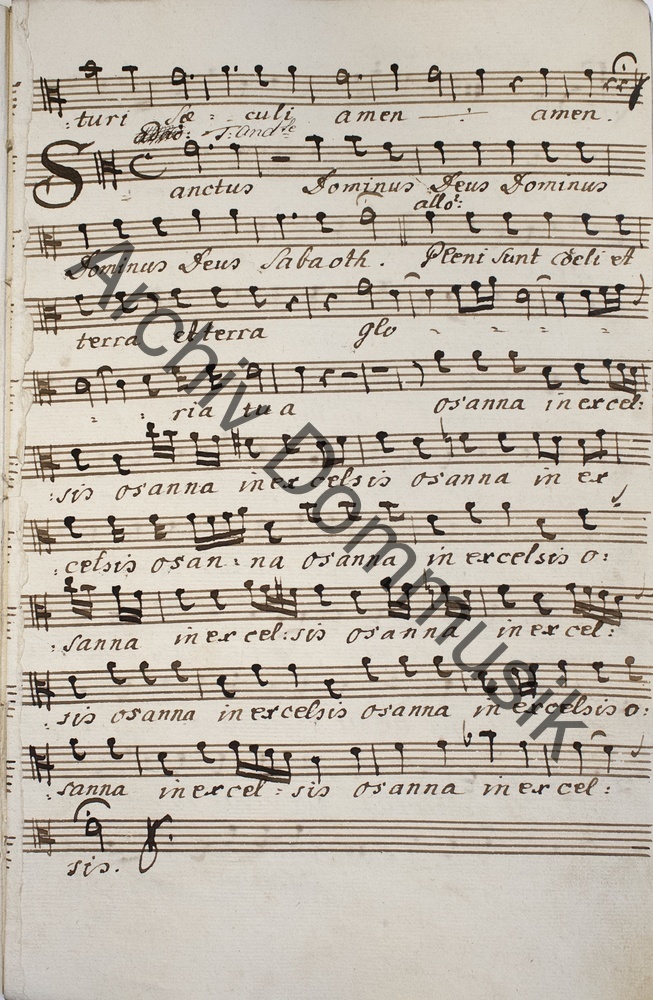 :turi sæ - culi amen — amen.
adag: T: And:te
Sanctus Dominus Deus Dominus
allo:
Dominus Deus Sabaoth. Pleni sunt coeli et
terra et terra glo - - - -
- - ria tua osanna in excel:
:sis osanna in excelsis osanna in ex
:celsis osan - na osanna in excelsis o:
:sanna in excel: sis osanna in excel:
:sis osanna in excelsis osanna in excelsis o:
:sanna in excel - sis osanna in excel:
sis.
Archiv Dommusik